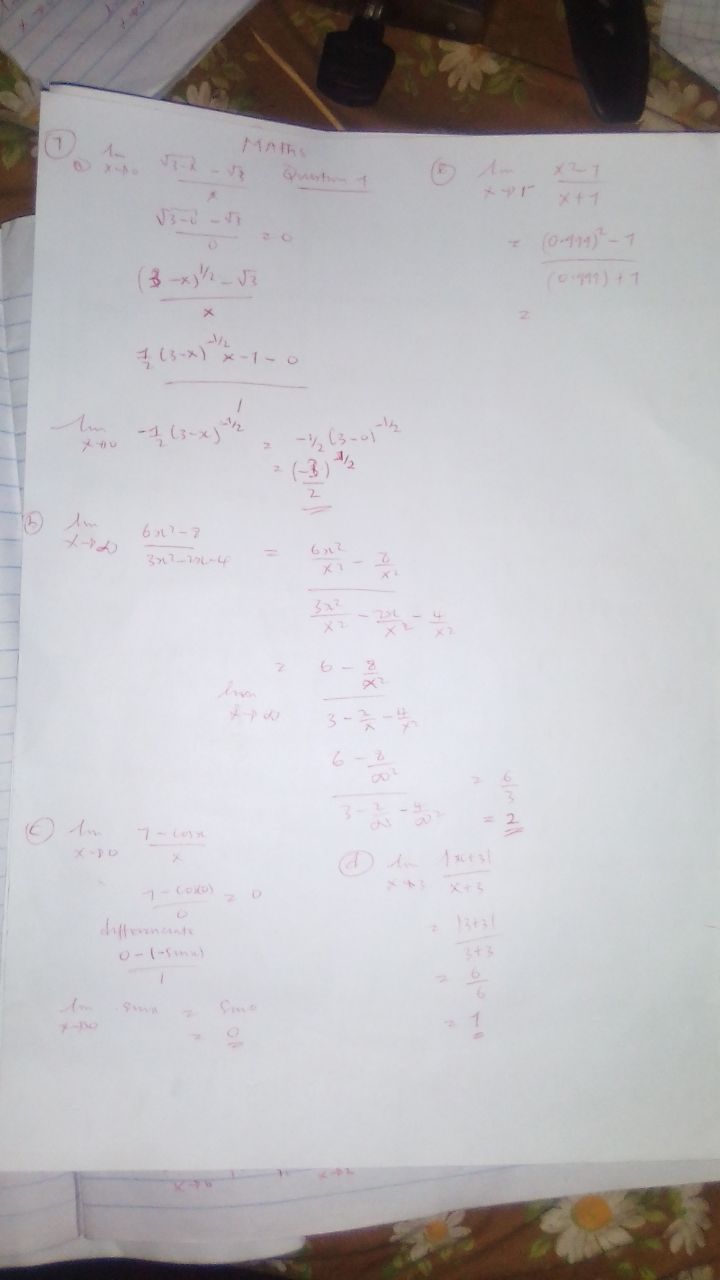 MATHS
Question 1
1
a) lim x→0 (√3-x - √3)/x
(√3-0 - √3)/0 = 0
((3-x)^1/2 - √3)/x
(1/2 (3-x)^-1/2 x -1 - 0)/1
lim x→0 -1/2 (3-x)^-1/2 = -1/2 (3-0)^-1/2
b) lim x→∞ (6x²-8)/(3x²-2x-4) = (6x²/x² - 8/x²)/(3x²/x² - 2x/x² - 4/x²)
= lim x→∞ (6 - 8/x²)/(3 - 2/x - 4/x²)
(6 - 8/∞²)/(3 - 2/∞ - 4/∞²) = 6/3
= 2
c) lim x→0 (1-cosx)/x
(1-cos(0))/0 = 0
differenciate
(0-(-sinx))/1
lim x→0 sinx = sin0
= 0
d) lim x→3 |x+3|/(x+3)
= |3+3|/(3+3)
= 6/6
= 1
lim (x²-1)/(x+1)
= ((0.999)² - 1)/((0.999) + 1)
=